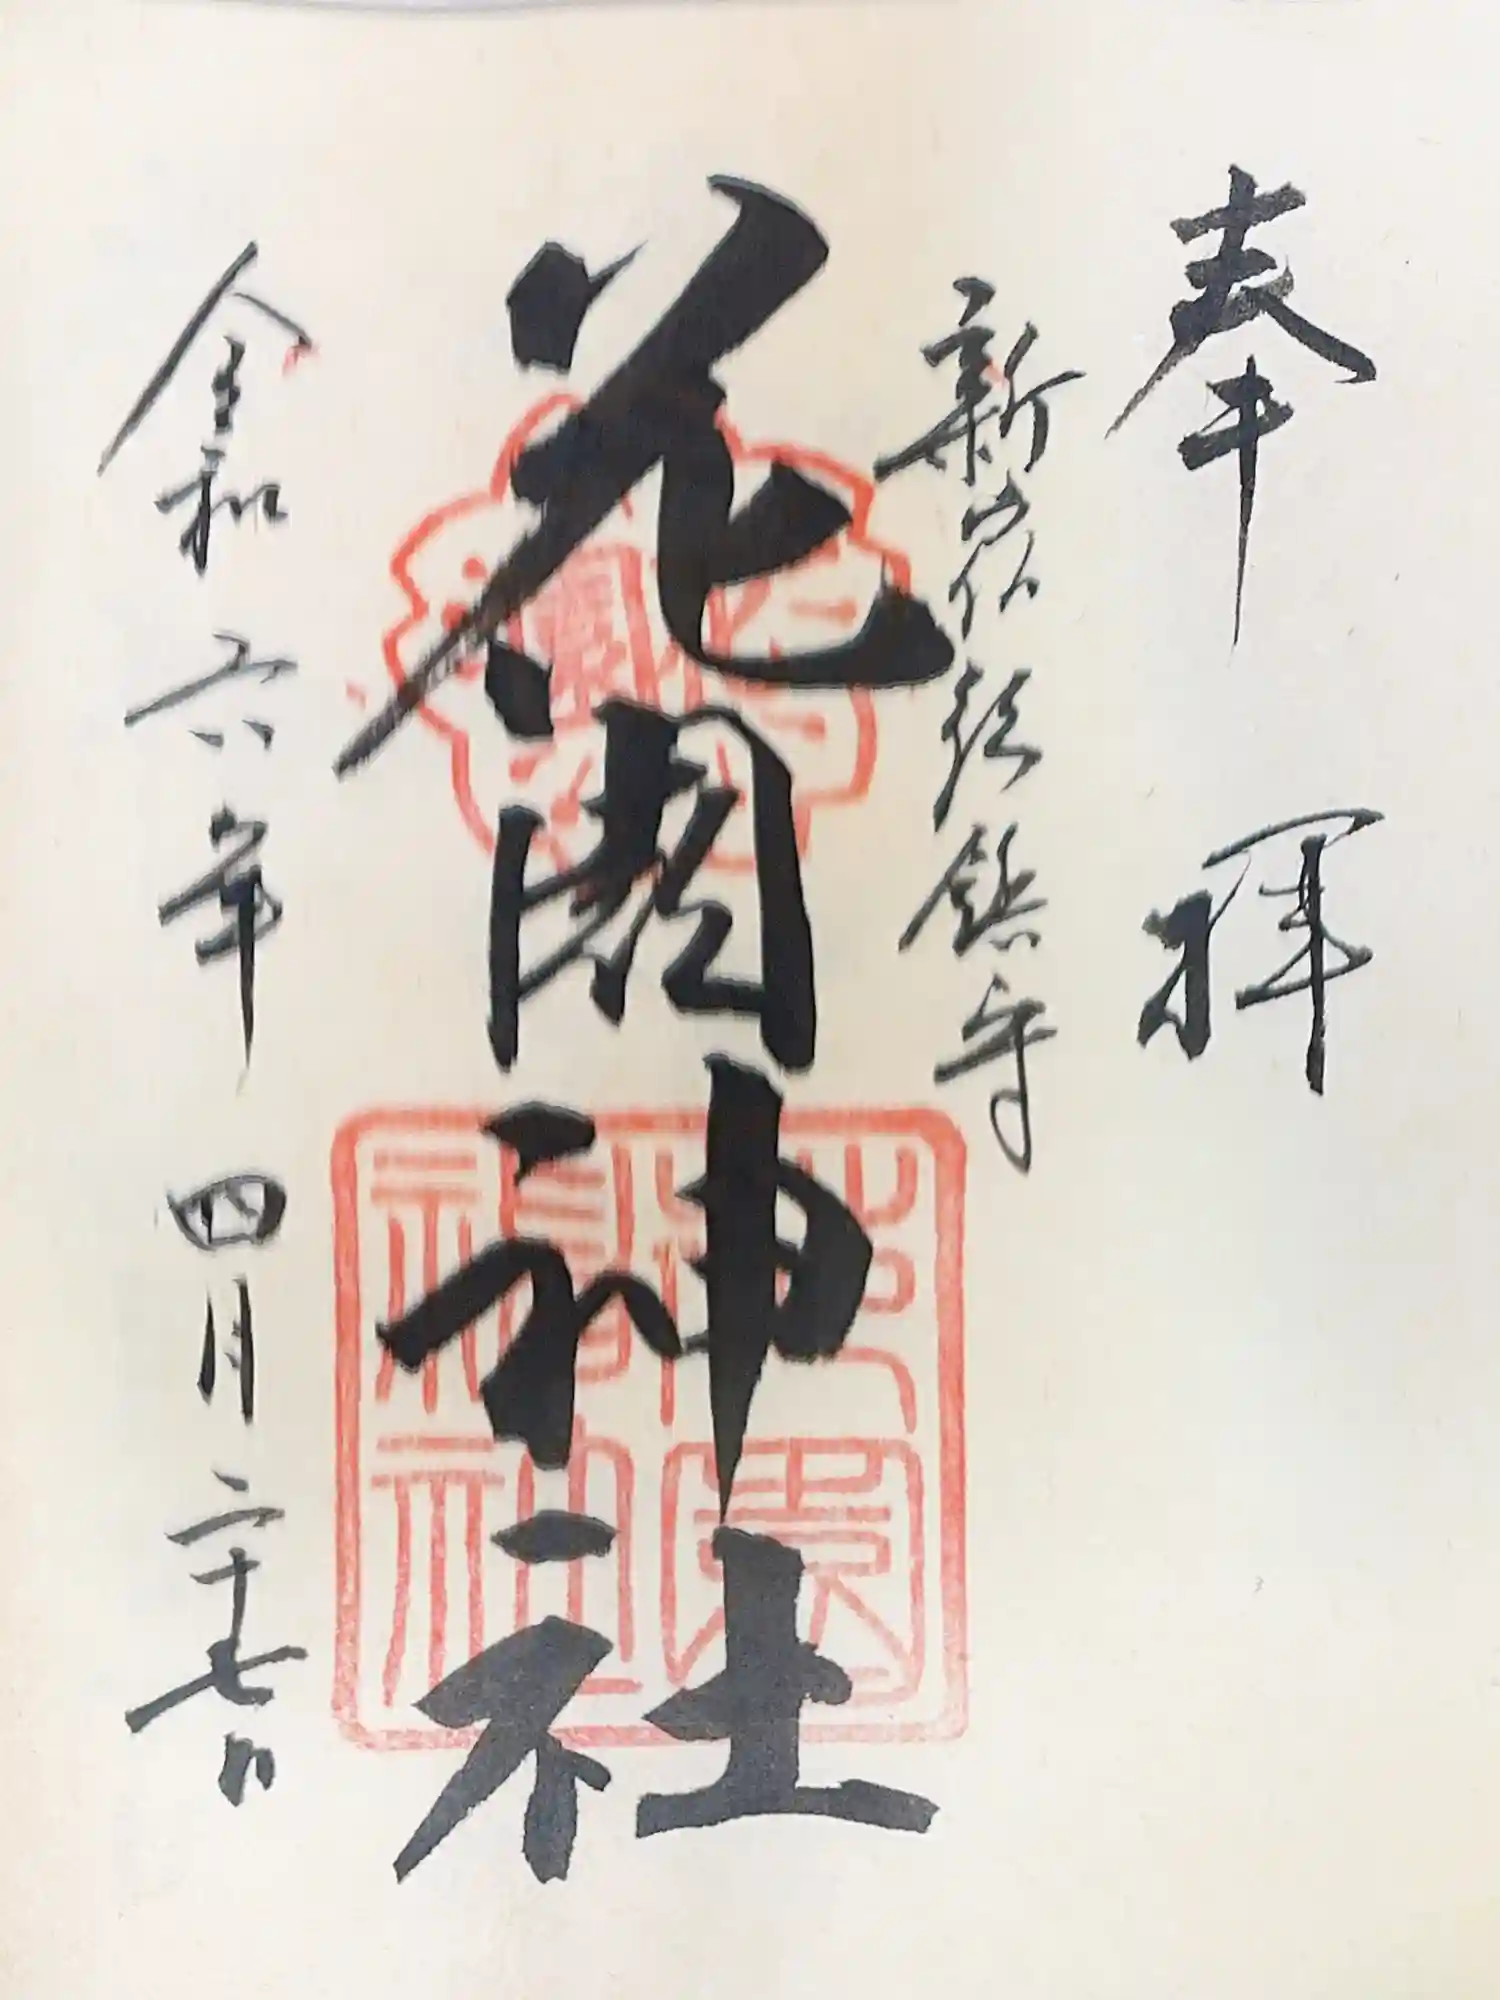 奉拝
新宿総鎮守
花園神社
令和六年四月二十七日
花園神社